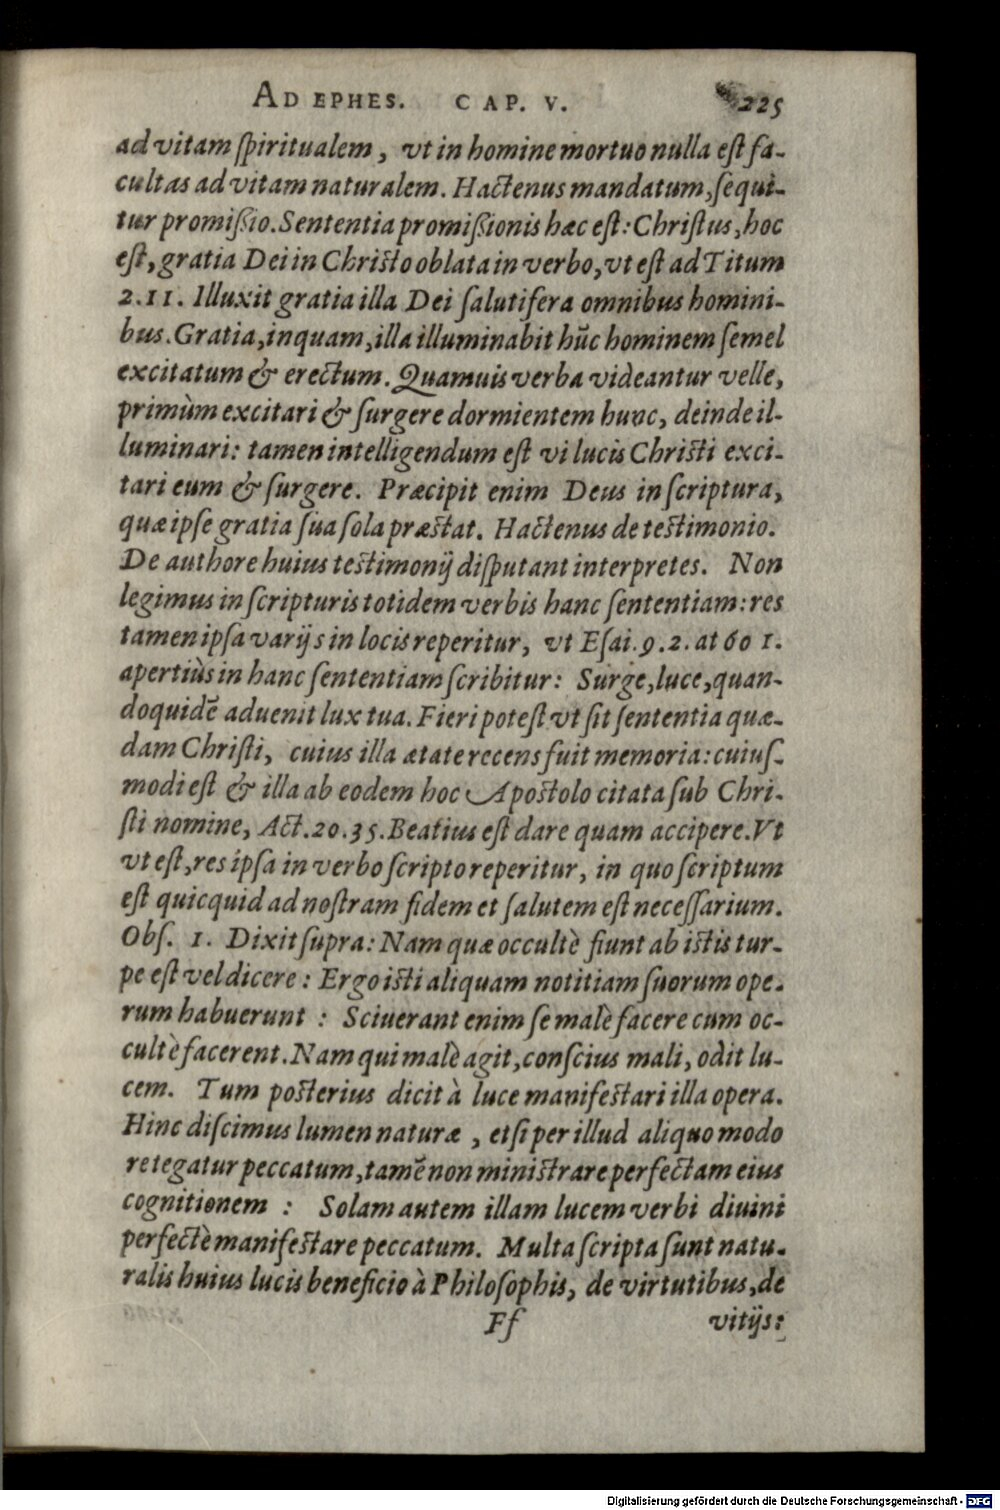 AD EPHES. CAP. V. 225
ad vitam ſpiritualem, vt in homine mortuo nulla eſt fa-
cultas ad vitam naturalem. Hactenus mandatum, ſequi-
tur promiſsio. Sententia promiſsionis hæc eſt: Chriſtus, hoc
eſt, gratia Dei in Chriſto oblata in verbo, vt eſt ad Titum
2.11. Illuxit gratia illa Dei ſalutifera omnibus homini-
bus. Gratia, inquam, illa illuminabit hũc hominem ſemel
excitatum & erectum. Quamuis verba videantur velle,
primùm excitari & ſurgere dormientem hunc, deinde il-
luminari: tamen intelligendum eſt vi lucis Chriſti exci-
tari eum & ſurgere. Præcipit enim Deus in ſcriptura,
quæ ipſe gratia ſua ſola præſtat. Hactenus de teſtimonio.
De authore huius teſtimonij diſputant interpretes. Non
legimus in ſcripturis totidem verbis hanc ſententiam: res
tamen ipſa varijs in locis reperitur, vt Eſai. 9. 2. at 60 1.
apertiùs in hanc ſententiam ſcribitur: Surge, luce, quan-
doquidē aduenit lux tua. Fieri poteſt vt ſit ſententia quæ-
dam Chriſti, cuius illa ætate recens fuit memoria: cuiuſ-
modi eſt & illa ab eodem hoc Apoſtolo citata ſub Chri-
ſti nomine, Act. 20. 35. Beatius eſt dare quam accipere. Vt
vt eſt, res ipſa in verbo ſcripto reperitur, in quo ſcriptum
eſt quicquid ad noſtram fidem et ſalutem eſt neceſſarium.
Obſ. 1. Dixit ſupra: Nam quæ occultè fiunt ab iſtis tur-
pe eſt vel dicere: Ergo iſti aliquam notitiam ſuorum ope-
rum habuerunt: Sciuerant enim ſe malè facere cum oc-
cultè facerent. Nam qui malè agit, conſcius mali, odit lu-
cem. Tum poſterius dicit à luce manifeſtari illa opera.
Hinc diſcimus lumen naturæ, etſi per illud aliquo modo
retegatur peccatum, tamē non miniſtrare perfectam eius
cognitionem: Solam autem illam lucem verbi diuini
perfectè manifeſtare peccatum. Multa ſcripta ſunt natu-
ralis huius lucis beneficio à Philoſophis, de virtutibus, de
Ff vitijs:
Digitalisierung gefördert durch die Deutsche Forschungsgemeinschaft - DFG